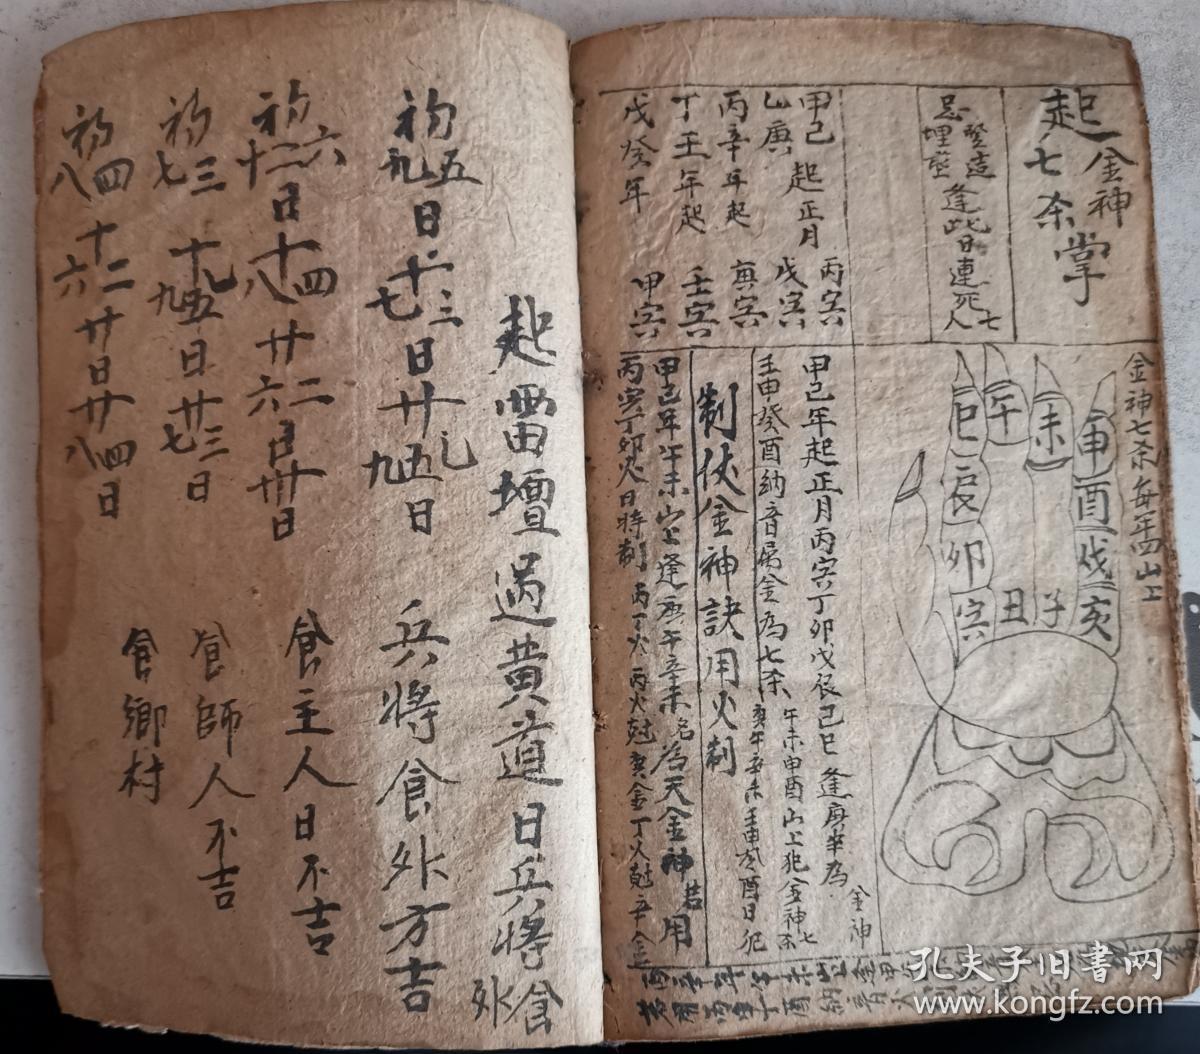 起金神七杀掌
忌竪造埋葬逢此日連死七人
甲己起正月丙寅
乙庚戊寅
丙辛年起庚寅
丁壬年起壬寅
戊癸年甲寅
金神七杀每年四山上
巳午未申酉戌亥
辰卯寅丑子
甲己年起正月丙寅丁卯戊辰己巳逢庚辛為金神
壬申癸酉納音屬金為七杀
午未申酉山上犯金神七杀
庚午辛未壬申癸酉日犯
制伏金神訣用火制
甲己年午未山上逢庚午辛未名為天金神若用
丙寅丁卯火日時制丙丁火丙火尅庚金丁火尅辛金
起雷壇過黄道日兵將食外
初五九日十三七日廿五九日兵將食外方吉
初六十二日十四八廿二六日卅日食主人日不吉
初三七十九五日廿三七日食師人不吉
初四八十二六廿日廿四八日食鄉村
孔夫子旧書网
www.kongfz.com